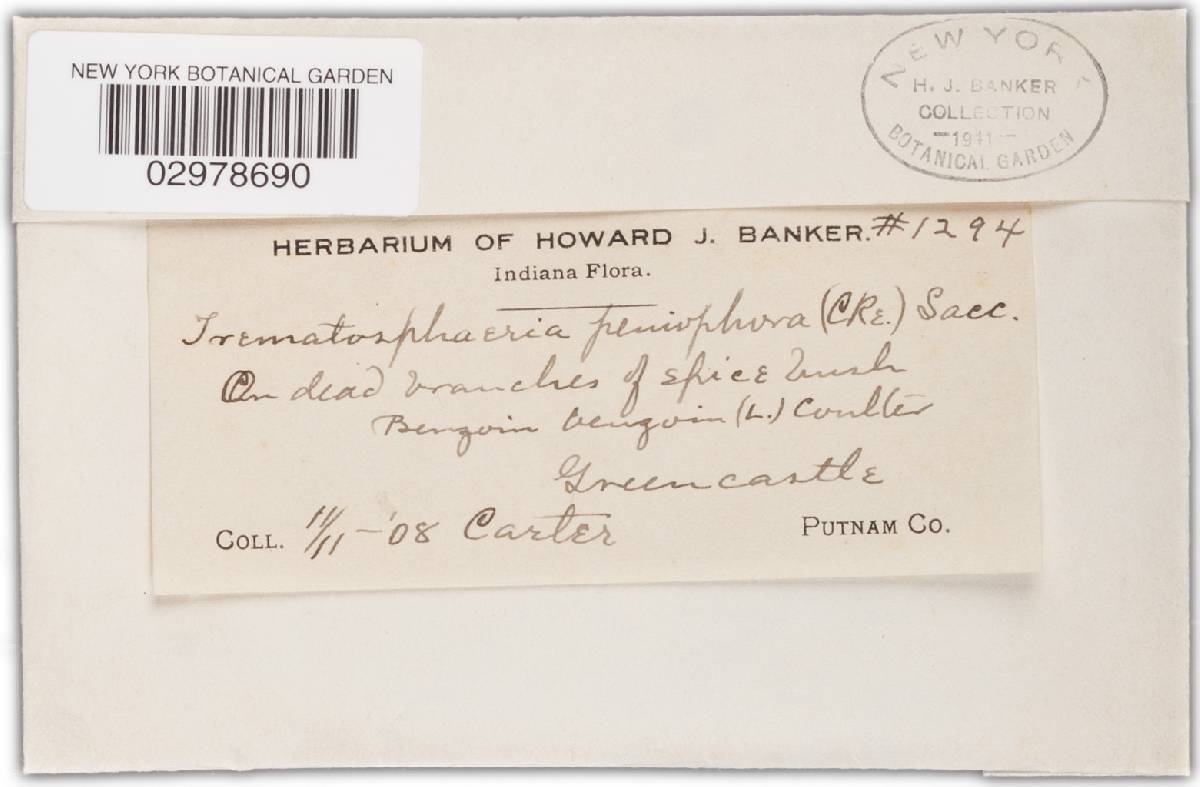 NEW YORK BOTANICAL GARDEN
02978690
NEW YORK
H. J. BANKER
COLLECTION
-1941-
BOTANICAL GARDEN
HERBARIUM OF HOWARD J. BANKER. #1294
Indiana Flora.
Trematosphaeria peniophora (CKE.) Sacc.
On dead branches of spice bush
Benzoin benzoin (L.) Coulter
Greencastle
COLL. 11/11-'08 Carter PUTNAM CO.